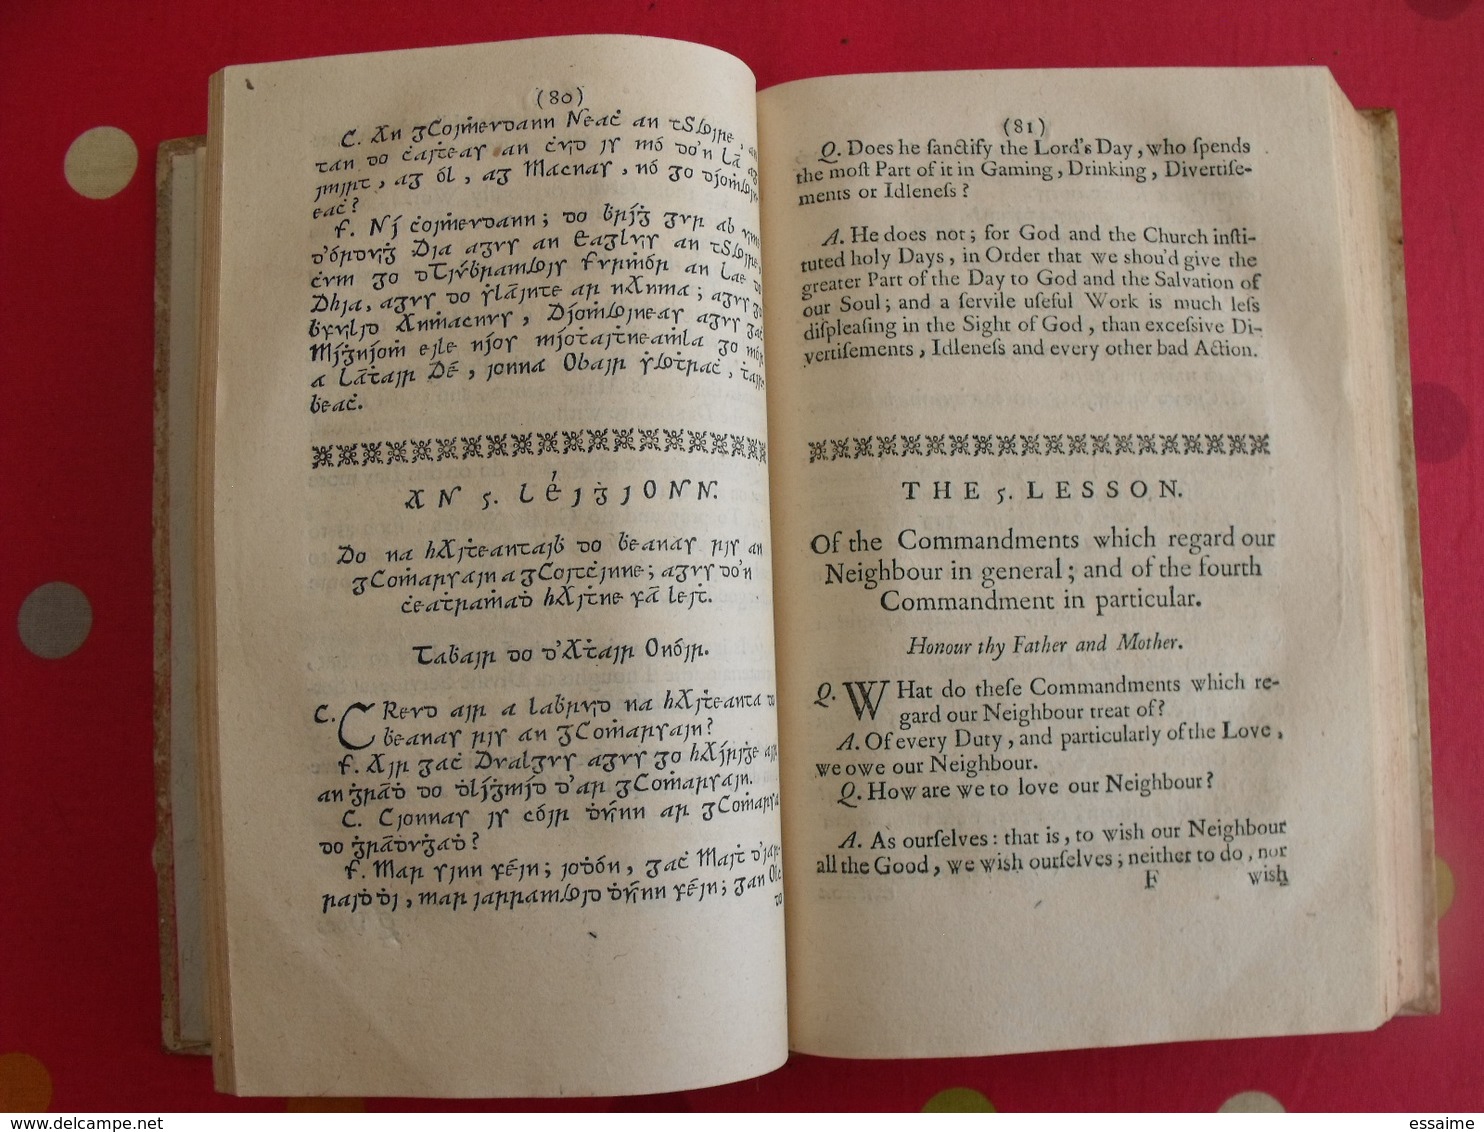 (80)
C. An gCoiṁeudann Neaċ an tSaoire,
tan do ċaiṫeas an ċuid is mó do'n Lā
imirt, ag ól, ag Macnas, nó go díoṁaoin
eaċ?
F. Ní ċoiṁeudann; do ḃríġ gur ab
d'órduiġ Dia agus an Eagluis an tSaoire,
ċum go dTiúḃramaois Furṁór an Lae do
Dhia, agus do ṡlāinte ar nAnma; agus
Anṁacnus, Díoṁaoineas agus gaċ
Míġníoṁ eile níos míoṫaiṫneaṁla go mór
a Lāṫair Dē, ionna Obair ṡaoṫraċ, ṫair-
ḃeaċ.
AN 5. LÉIĠIONN.
Do na hAiṫeantaiḃ do ḃeanas ris an
gCoṁarsain a gCoitċinne; agus do'n
ċeaṫraṁaḋ hAiṫne fā leiṫ.
Taḃair do d'Aṫair Onóir.
C. CReud air a laḃruid na hAiṫeanta do
ḃeanas ris an gCoṁarsain?
F. Air gaċ Dualgus agus go hAíriġe air
an ġrāḋ do ḋlíġmíd d'ar gCoṁarsain.
C. Cionnas is cóir ḋúinn ar gCoṁarsa
do ġrāḋuġaḋ?
F. Mar sinn fēin; ioḋón, gaċ Maiṫ d'iar-
raiḋ ḋi, mar iarramaoid ḋúinn fēin; gan Olc
do
(81)
Q. Does he ſanctify the Lord's Day, who ſpends
the moſt Part of it in Gaming, Drinking, Divertiſe-
ments or Idleneſs?
A. He does not; for God and the Church inſti-
tuted holy Days, in Order that we shou'd give the
greater Part of the Day to God and the Salvation of
our Soul; and a ſervile uſeful Work is much leſs
diſpleaſing in the Sight of God, than exceſsive Di-
vertiſements, Idleneſs and every other bad Action.
THE 5. LESSON.
Of the Commandments which regard our
Neighbour in general; and of the fourth
Commandment in particular.
Honour thy Father and Mother.
Q. WHat do theſe Commandments which re-
gard our Neighbour treat of?
A. Of every Duty, and particularly of the Love,
we owe our Neighbour.
Q. How are we to love our Neighbour?
A. As ourſelves: that is, to wish our Neighbour
all the Good, we wish ourſelves; neither to do, nor
F wish
delcampe.net
essaime